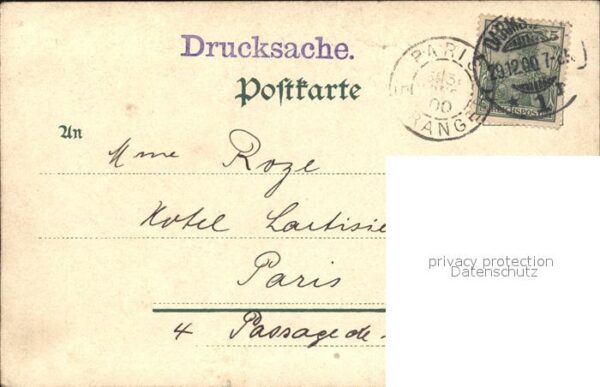 Drucksache.
Postkarte
PARIS
ETRANGER
00
29.12.00 7-8
REICHSPOST
An
Mme Roze
Hotel
Paris
4 Passage de
privacy protection
Datenschutz